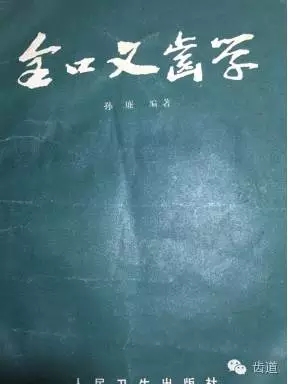 全口义齿学
孙廉 编著
人民卫生出版社
齿道